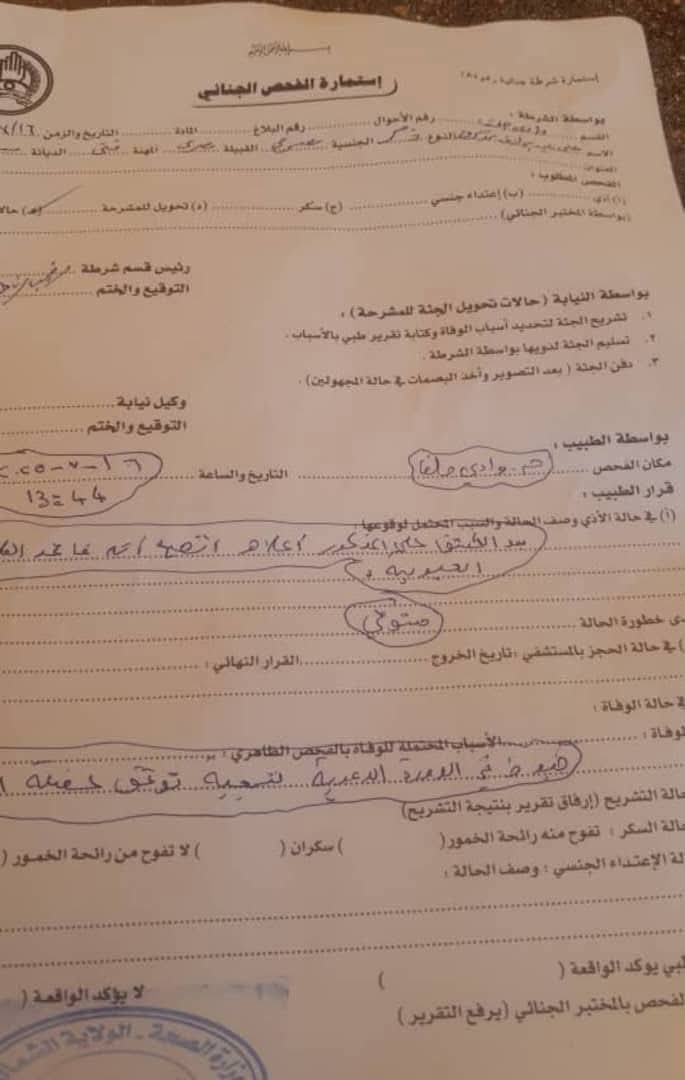 استمارة شرطة جنائية
استمارة الفحص الجنائي
بواسطة الشرطة :
القسم ........ رقم الأحوال ........ رقم البلاغ ........ المادة ........ التاريخ والزمن
الاسم ........ النوع ذكر الجنسية مصري القبيلة مصري المهنة ........ الديانة
العنوان
الفحص المطلوب :
(أ) أذى ........ (ب) إعتداء جنسي ........ (ج) سكر ........ (د) تحويل للمشرحة ........ (هـ)
(بواسطة المختبر الجنائي)
رئيس قسم شرطة
التوقيع والختم
بواسطة النيابة (حالات تحويل الجثة للمشرحة) :
١. تشريح الجثة لتحديد أسباب الوفاة وكتابة تقرير طبي بالأسباب .
٢. تسليم الجثة لذويها بواسطة الشرطة .
٣. دفن الجثة ( بعد التصوير وأخذ البصمات في حالة المجهولين) .
وكيل نيابة
التوقيع والختم
بواسطة الطبيب :
مكان الفحص ........ وادي حلفا ........ التاريخ والساعة ١٦-٧-
قرار الطبيب :
13:44
(أ) في حالة الأذى وصف الحالة والسبب المحتمل لوقوعها :
بعد الكشف على المذكور أعلاه اتضح أنه فاقد
الحيوية
خطورة الحالة ........ متوفي
في حالة الحجز بالمستشفي : تاريخ الخروج ........ القرار النهائي :
في حالة الوفاة :
الأسباب المحتملة للوفاة بالفحص الظاهري :
هبوط في الدورة الدموية نتيجة توقف عضلة
حالة التشريح (إرفاق تقرير بنتيجة التشريح)
حالة السكر : تفوح منه رائحة الخمور( ) سكران ( ) لا تفوح من رائحة الخمور (
الإعتداء الجنسي : وصف الحالة :
يوكد الواقعة ( )
لا يوكد الواقعة (
الفحص بالمختبر الجنائي (يرفع التقرير )
وزارة الصحة - الولاية